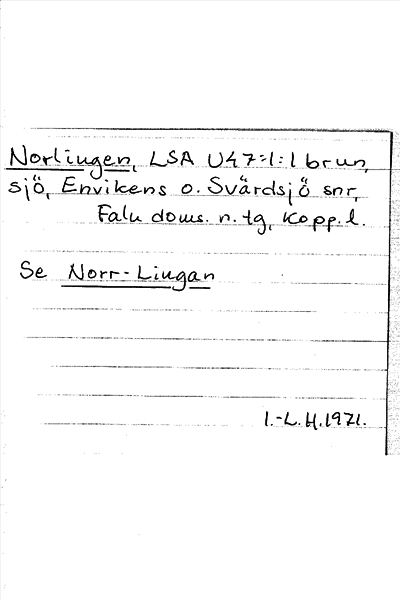 Norlingen, LSA U47:1:1 brun,
sjö, Envikens o. Svärdsjö snr,
Falu doms. n. tg, Kopp. l.
Se Norr-Lingan
I.-L. H. 1971.